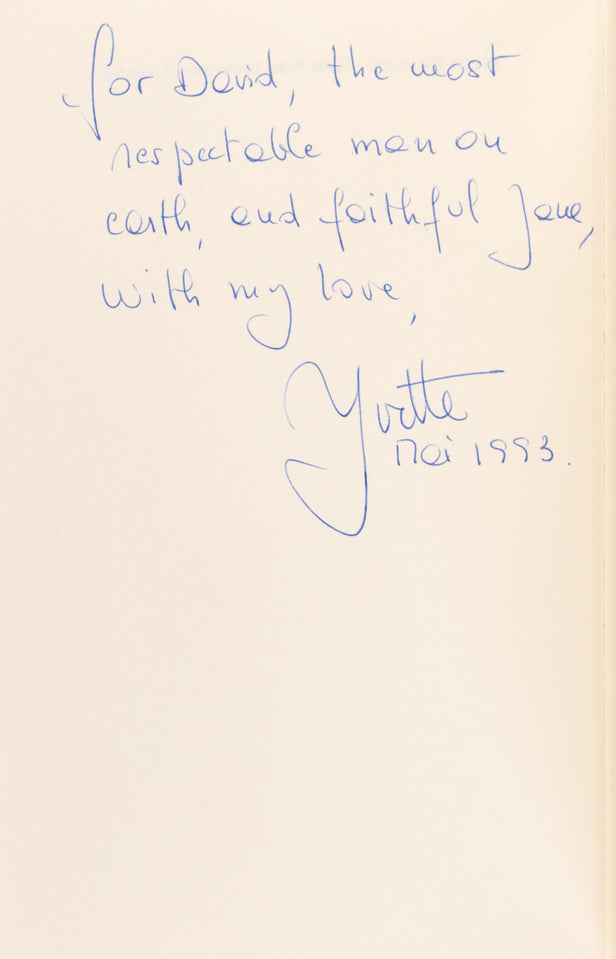 for David, the most
respectable man on
earth, and faithful Jane,
with my love,
Yvette
Mai 1993.